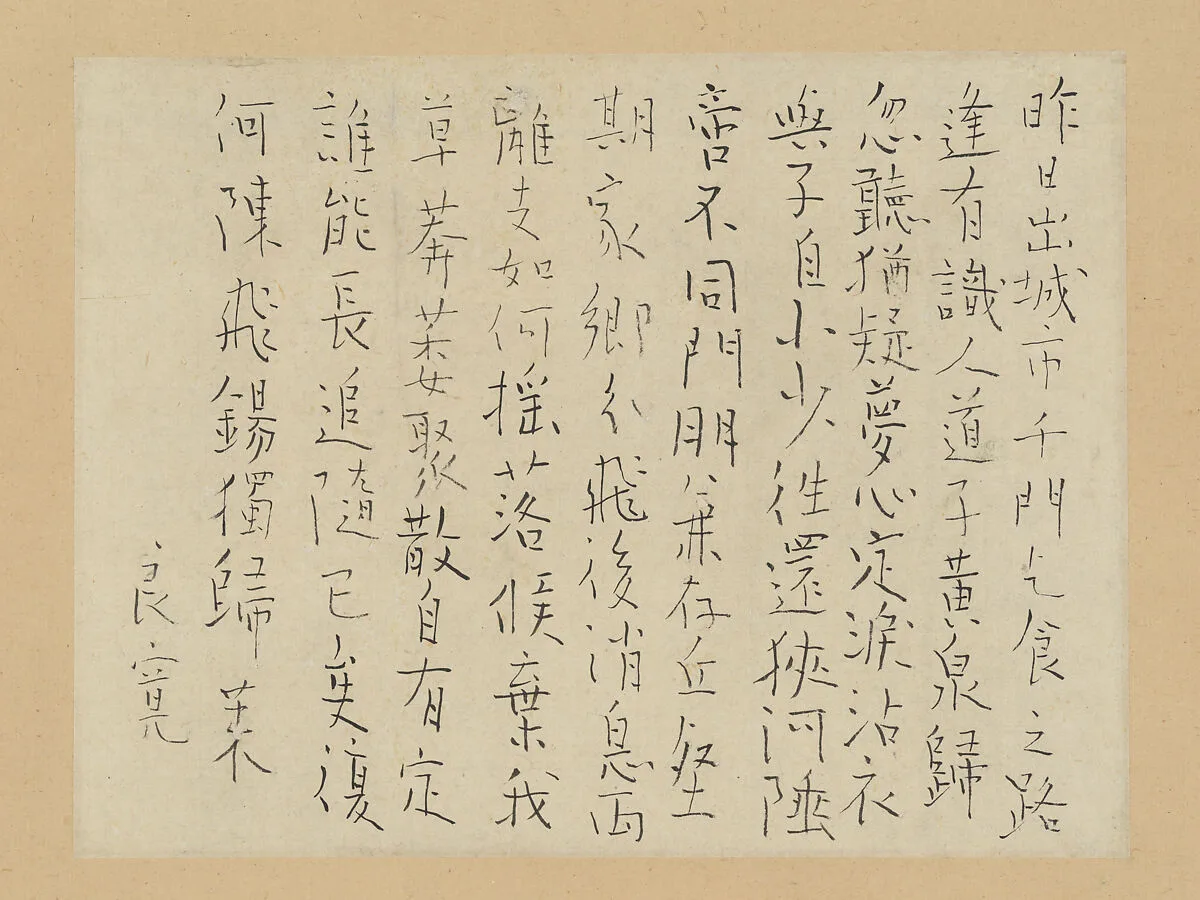 昨日出城市千門乞食之路
逢有識人道子黃泉歸
忽聽猶疑夢心定淚沾衣
與子自小少往還狹河陲
啻不同門朋兼存丘壑
期家鄉分飛後消息兩
離支如何搖落候棄我
草莽萎聚散自有定
誰能長追隨已矣復
何陳飛錫獨歸来
良寛